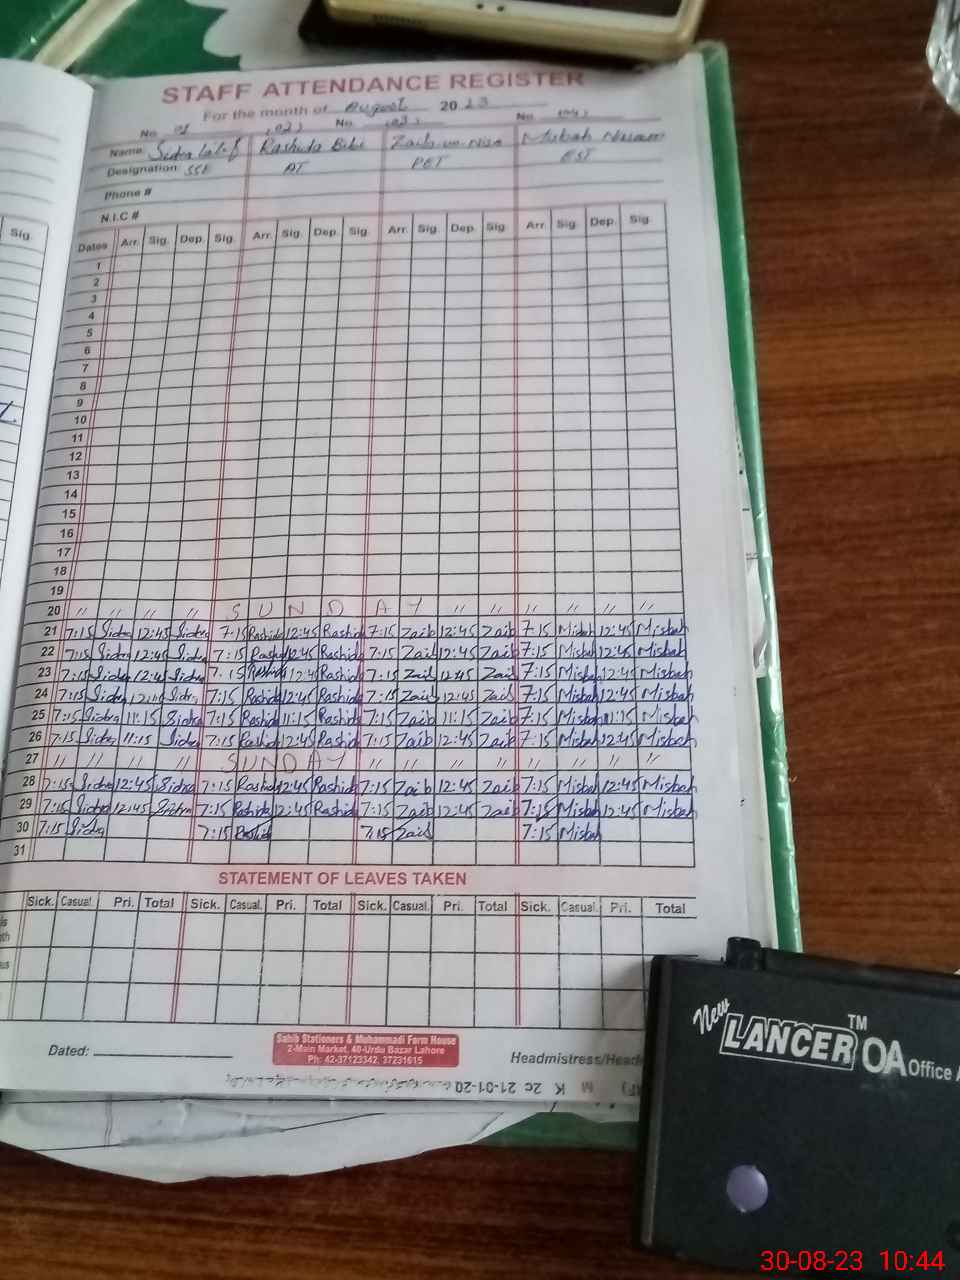 STAFF ATTENDANCE REGISTER
For the month of August 20 23
No. 01 (02) No. (03) No.
Name: Sidra Latif Rashida Bibi Zaib-un-Nisa Misbah
Designation: SSE AT PET EST
Phone #
N.I.C #
Sig. Dates Arr. Sig. Dep. Sig. Arr. Sig. Dep. Sig. Arr. Sig. Dep. Sig. Arr. Sig. Dep. Sig.
1
2
3
4
5
6
7
8
9
10
11
12
13
14
15
16
17
18
19
20 " " " " S U N D A Y " " " " " "
21 7:15 Sidra 12:45 Sidra 7:15 Rashida 12:45 Rashida 7:15 Zaib 12:45 Zaib 7:15 Misbah 12:45 Misbah
22 7:15 Sidra 12:45 Sidra 7:15 Rashida 12:45 Rashida 7:15 Zaib 12:45 Zaib 7:15 Misbah 12:45 Misbah
23 7:15 Sidra 12:45 Sidra 7:15 Rashida 12:45 Rashida 7:15 Zaib 12:45 Zaib 7:15 Misbah 12:45 Misbah
24 7:15 Sidra Sidra 7:15 Rashida 12:45 Rashida 7:15 Zaib 12:45 Zaib 7:15 Misbah 12:45 Misbah
25 7:15 Sidra 11:15 Sidra 7:15 Rashida 11:15 Rashida 7:15 Zaib 11:15 Zaib 7:15 Misbah 11:15 Misbah
26 7:15 Sidra 11:15 Sidra 7:15 Rashida 12:45 Rashida 7:15 Zaib 12:45 Zaib 7:15 Misbah 12:45 Misbah
27 " " " " SUNDAY " " " " " " " "
28 7:15 Sidra 12:45 Sidra 7:15 Rashida 12:45 Rashida 7:15 Zaib 12:45 Zaib 7:15 Misbah 12:45 Misbah
29 7:15 Sidra 12:45 Sidra 7:15 Rashida 12:45 Rashida 7:15 Zaib 12:45 Zaib 7:15 Misbah 12:45 Misbah
30 7:15 Sidra 7:15 Rashida 7:15 Zaib 7:15 Misbah
31
STATEMENT OF LEAVES TAKEN
Sick. Casual. Pri. Total Sick. Casual. Pri. Total Sick. Casual. Pri. Total Sick. Casual. Pri. Total
Dated:
Sahib Stationers & Muhammadi Form House
2-Main Market, 40-Urdu Bazar Lahore
Ph: 42-37123342, 37231615
Headmistress/Head
New LANCER TM OA Office
30-08-23 10:44